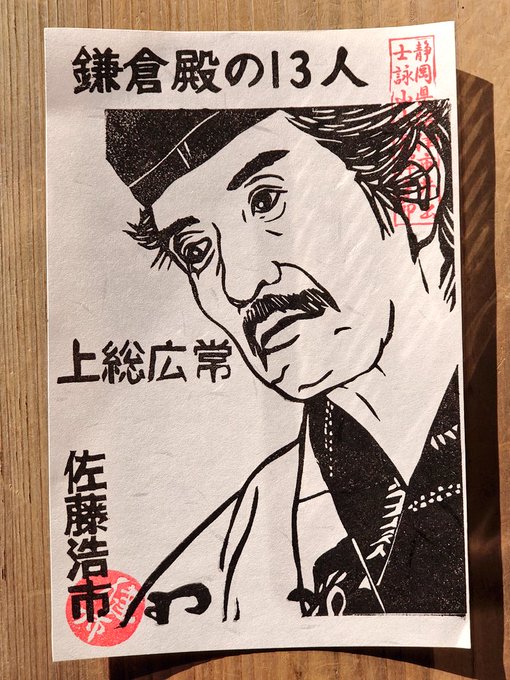 鎌倉殿の13人
上総広常
佐藤浩市
静岡県
士詠